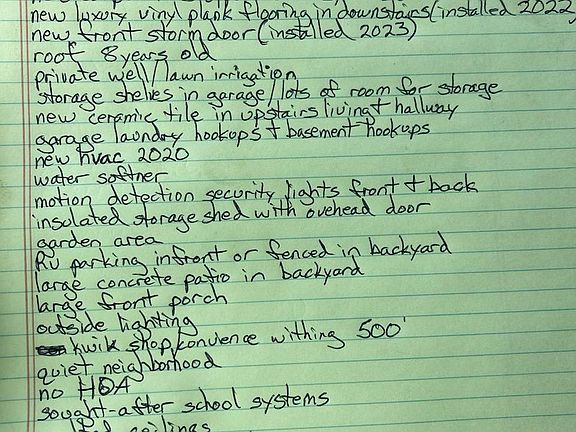 new luxury vinyl plank flooring in downstairs (installed 2022
new front storm door (installed 2023)
roof 8 years old
private well/lawn irrigation
storage shelves in garage/lots of room for storage
new ceramic tile in upstairs living + hallway
garage laundry hookups + basement hookups
new hvac 2020
water softner
motion detection security lights front + back
insulated storage shed with ovehead door
garden area
RV parking infront or fenced in backyard
large concrete patio in backyard
large front porch
outside lighting
kwik shop/convuence withing 500'
quiet neighborhood
no HOA
sought-after school systems
ceilings